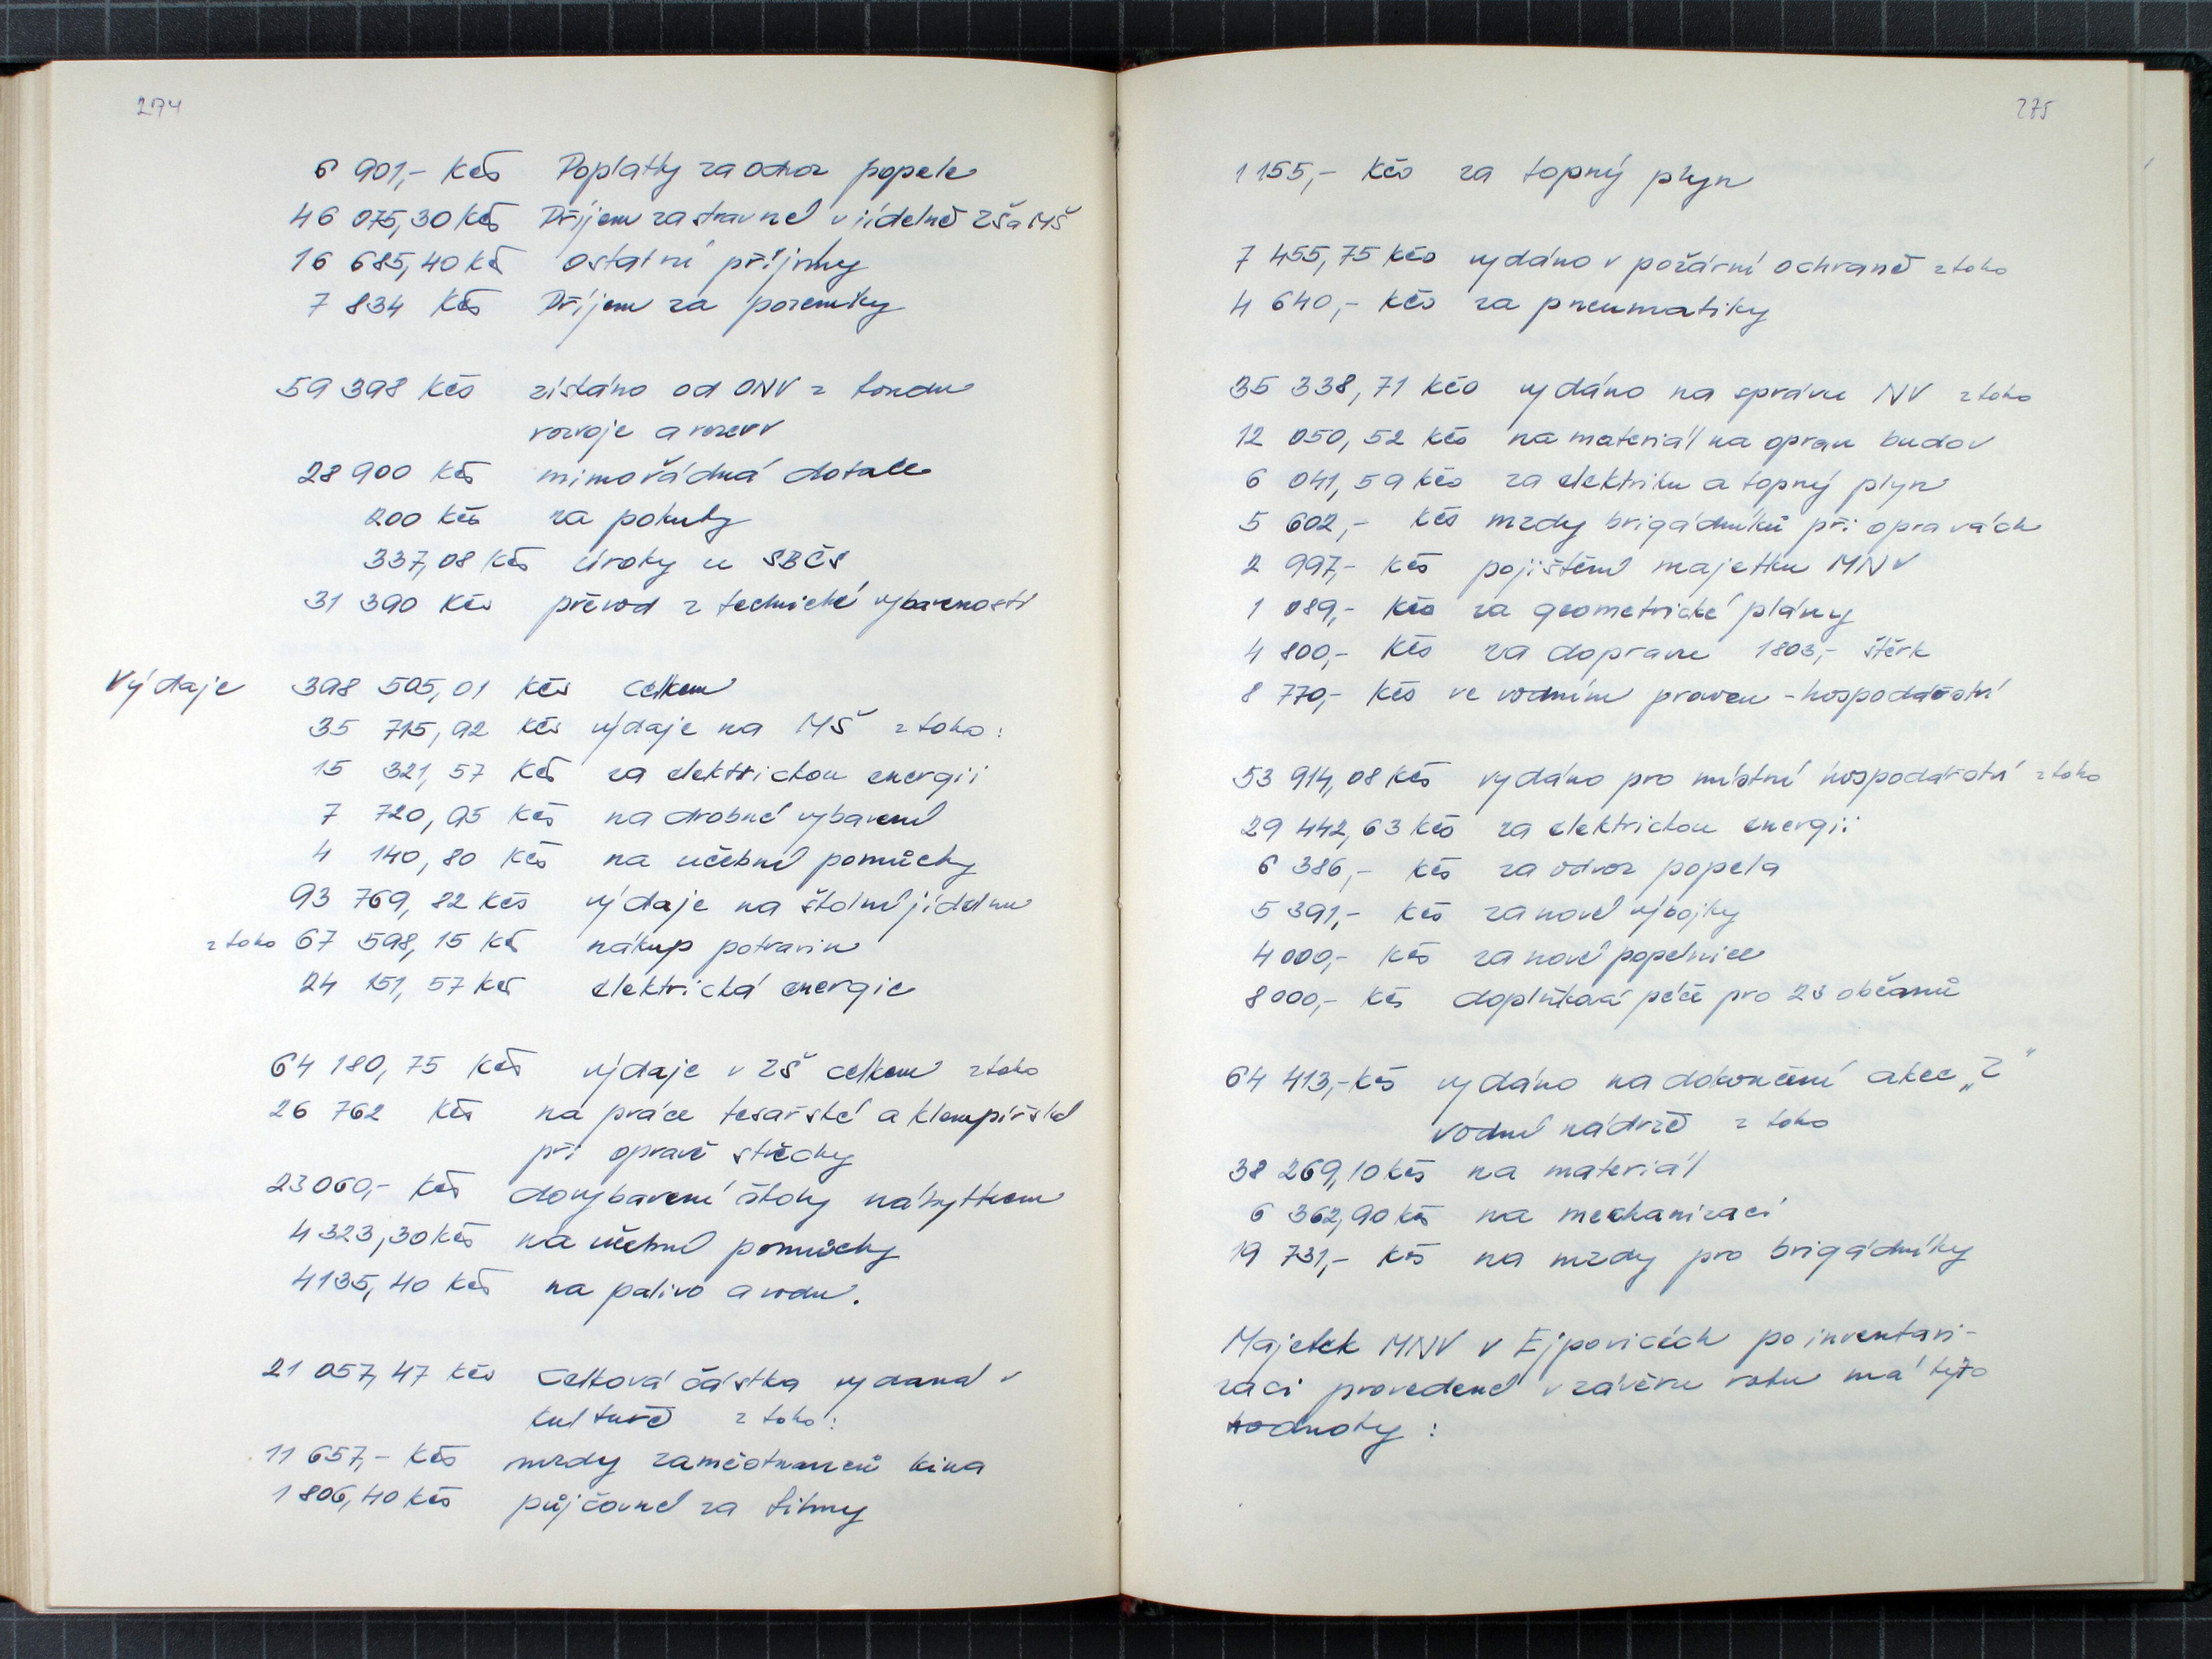 274
6 901,- Kčs Poplatky za odvoz popele
46 075,30 Kčs Příjem za stravné v jídelně ZŠ a MŠ
16 685,40 Kčs ostatní příjmy
7 834 Kčs Příjem za pozemky
59 398 Kčs získáno od ONV z fondu
rozvoje a rezerv
28 900 Kčs mimořádná dotace
200 Kčs za pokuty
337,08 Kčs úroky u SBČS
31 390 Kčs převod z technické vybavenosti
Výdaje 398 505,01 Kčs celkem
35 715,92 Kčs výdaje na MŠ z toho:
15 321,57 Kčs za elektrickou energii
7 720,95 Kčs na drobné vybavení
4 140,80 Kčs na učební pomůcky
93 769,82 Kčs výdaje na školní jídelnu
z toho 67 598,15 Kčs nákup potravin
24 151,57 Kčs elektrická energie
64 180,75 Kčs výdaje v ZŠ celkem z toho
26 762 Kčs na práce tesařské a klempířské
při opravě střechy
23 060,- Kčs dovybavení školy nábytkem
4 323,30 Kčs na učební pomůcky
4135,40 Kčs na palivo a vodu.
21 057,47 Kčs Celková částka vydaná v
kultuře z toho:
11 657,- Kčs mzdy zaměstnanců kina
1 806,40 Kčs půjčovné za filmy
275
1 155,- Kčs za topný plyn
7 455,75 Kčs vydáno v požární ochraně z toho
4 640,- Kčs za pneumatiky
35 338,71 Kčs vydáno na správu NV z toho
12 050,52 Kčs na materiál na opravu budov
6 041,59 Kčs za elektriku a topný plyn
5 602,- Kčs mzdy brigádníků při opravách
2 997,- Kčs pojištění majetku MNV
1 089,- Kčs za geometrické plány
4 800,- Kčs za dopravu 1803,- štěrk
8 770,- Kčs ve vodním - hospodářství
53 914,08 Kčs vydáno pro místní hospodářství z toho
29 442,63 Kčs za elektrickou energii
6 386,- Kčs za odvoz popela
5 391,- Kčs za nové výbojky
4 000,- Kčs za nové popelnice
8 000,- Kčs doplňková péče pro 23 občanů
64 413,- Kčs vydáno na dokončení akce „Z"
vodní nádrže z toho
38 269,10 Kčs na materiál
6 362,90 Kčs na mechanizaci
19 731,- Kčs na mzdy pro brigádníky
Majetek MNV v Ejpovicích po inventari-
zaci provedené v závěru roku má tyto
hodnoty: